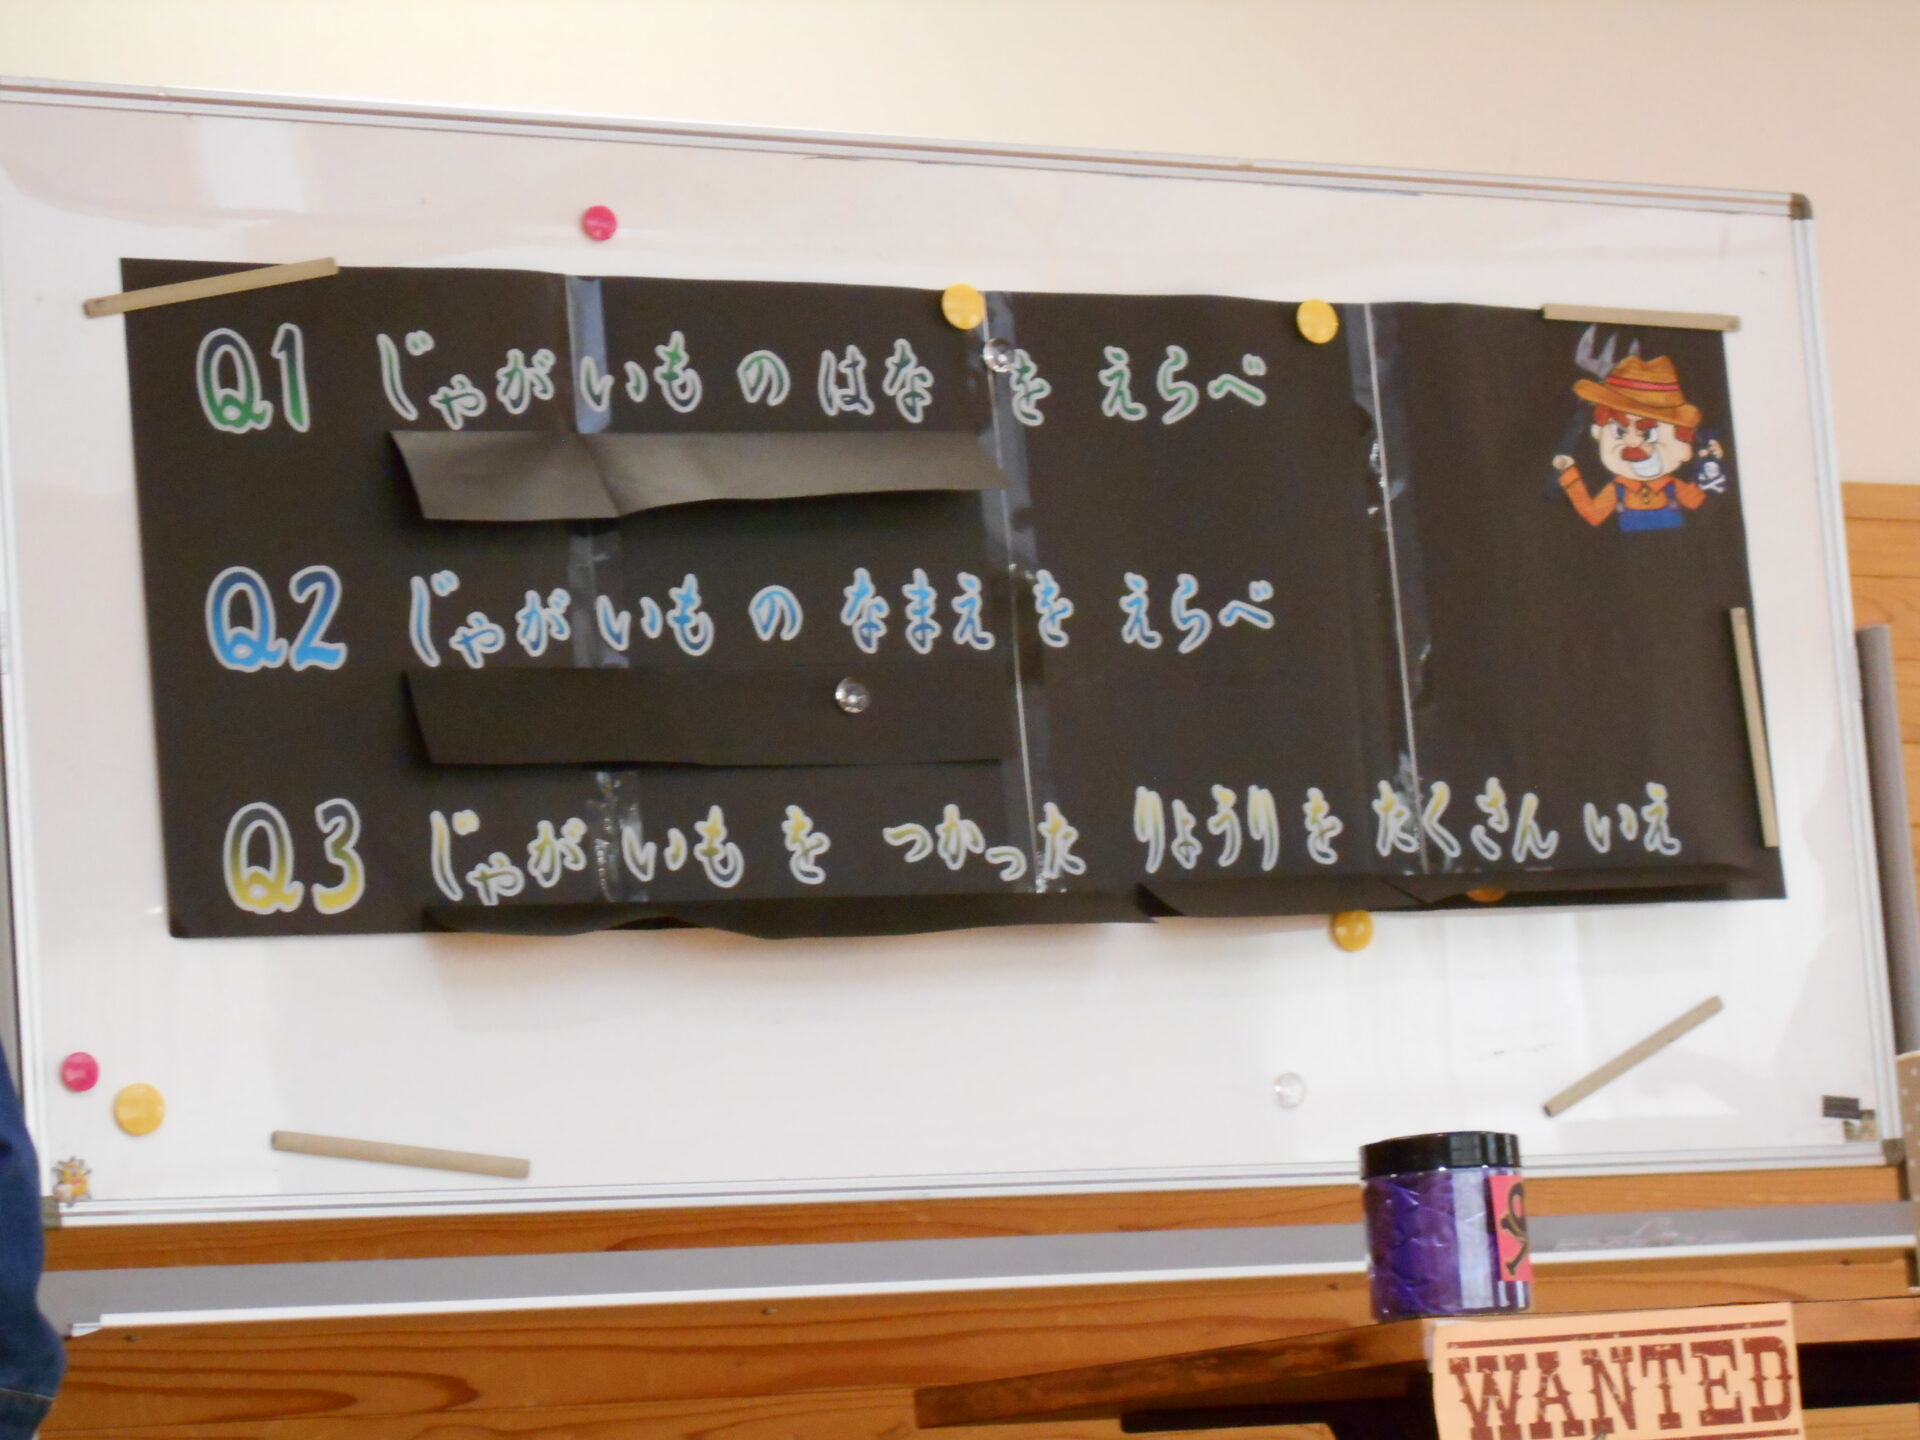 Q1 じゃがいも の はな を えらべ
Q2 じゃがいも の なまえ を えらべ
Q3 じゃがいも を つかった りょうり を たくさん いえ
WANTED